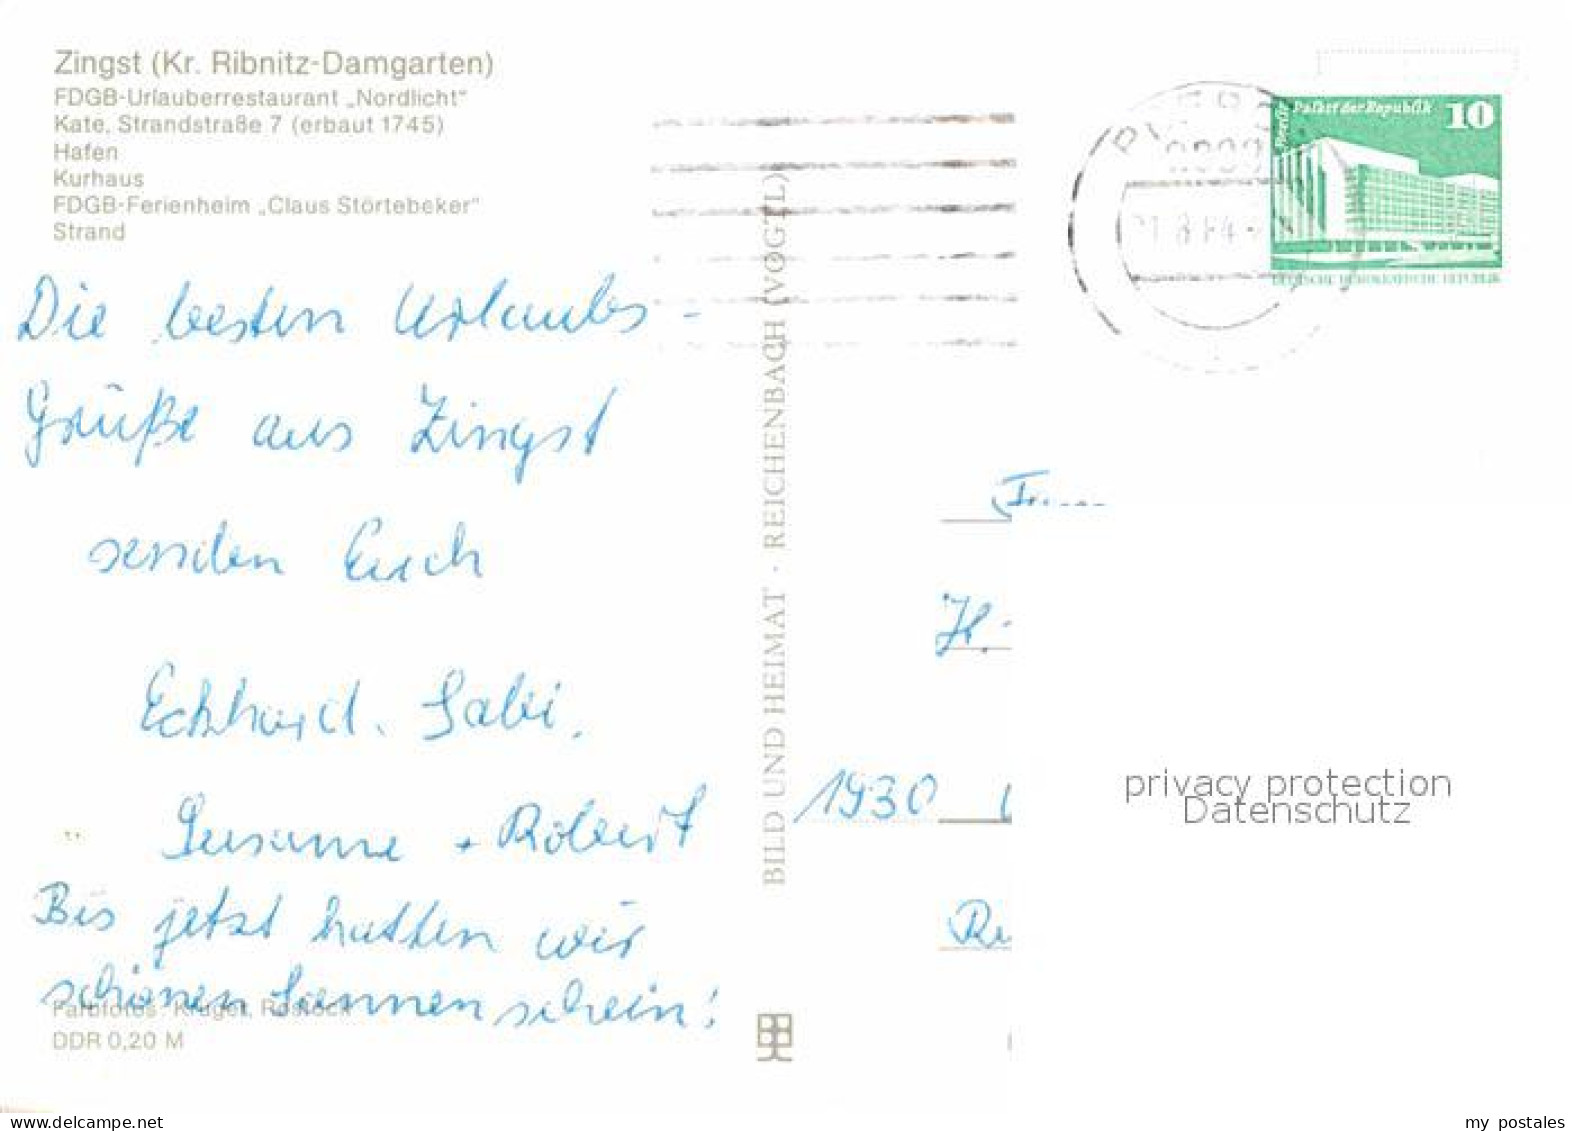 Zingst (Kr. Ribnitz-Damgarten)
FDGB-Urlauberrestaurant „Nordlicht"
Kate, Strandstraße 7 (erbaut 1745)
Hafen
Kurhaus
FDGB-Ferienheim „Claus Störtebeker"
Strand
Die besten Urlaubs-
Grüße aus Zingst
senden Euch
Eckhard, Gabi,
Susanne + Robert
Bis jetzt hatten wir
schönen Sonnenschein!
Farbfotos: Krüger, Rostock
DDR 0,20 M
BILD UND HEIMAT · REICHENBACH (VOGTL)
Berlin Palast der Republik 10
DEUTSCHE DEMOKRATISCHE REPUBLIK
1930
privacy protection
Datenschutz
my postales
www.delcampe.net